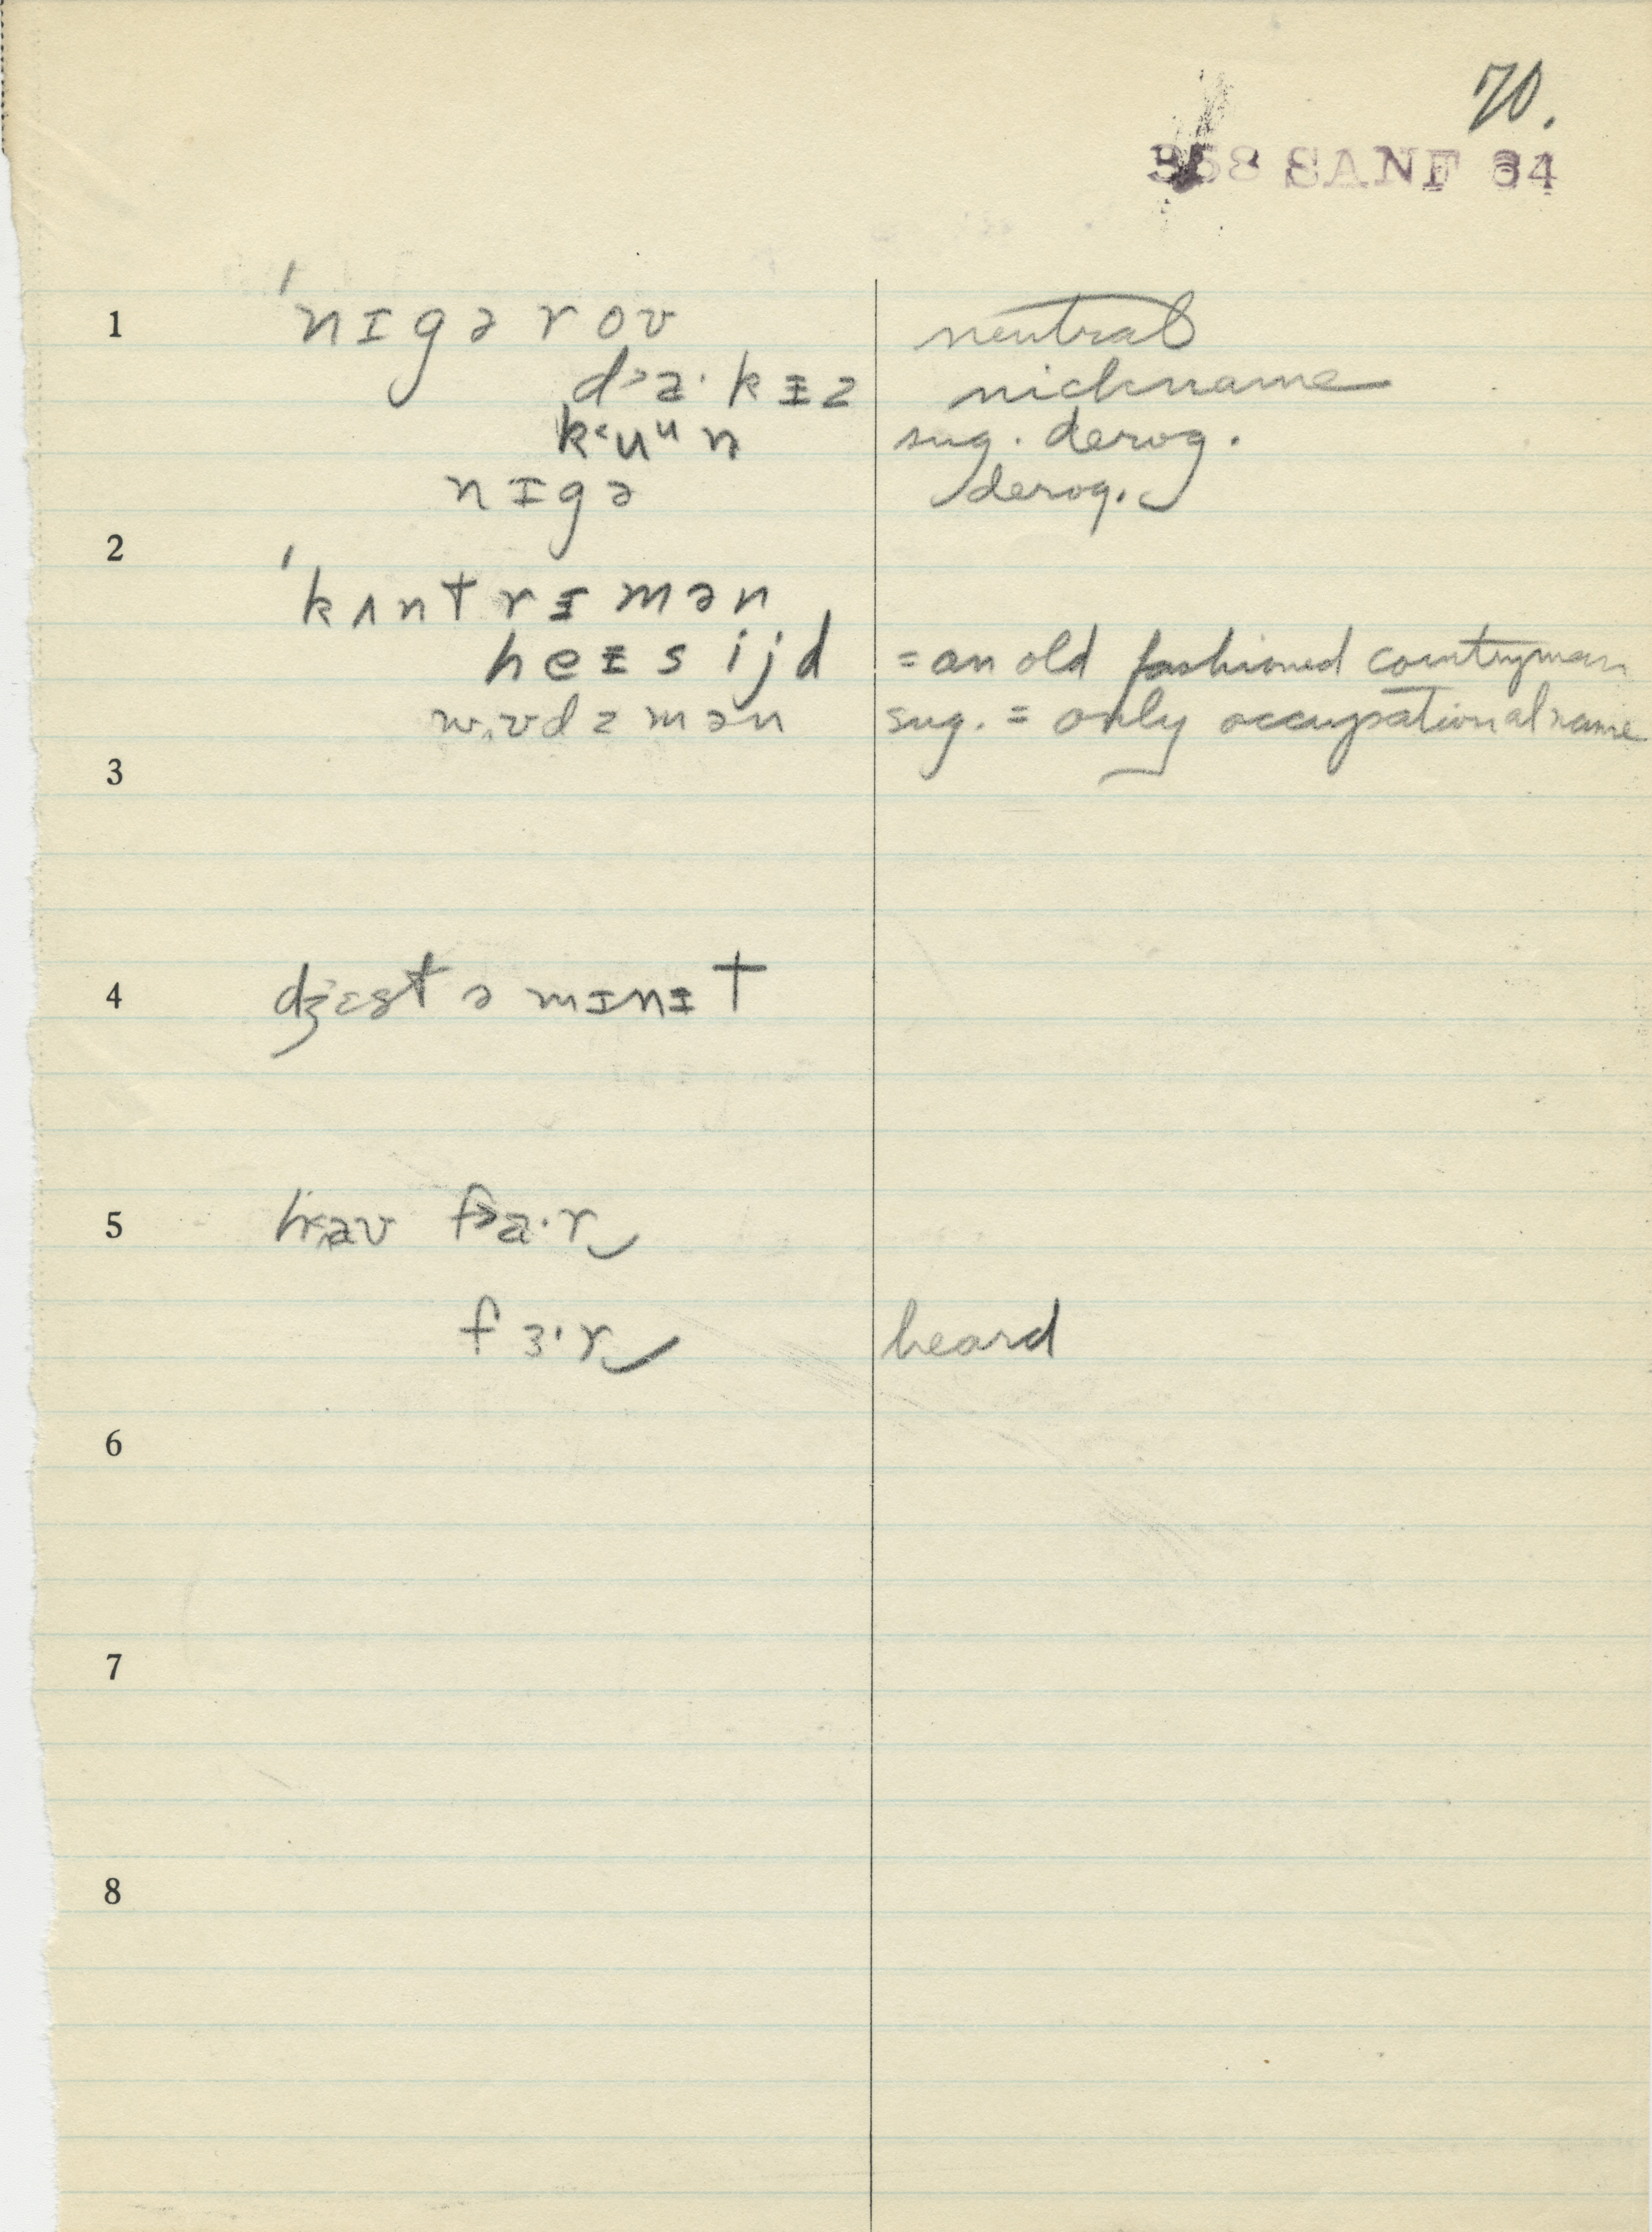 70.
358 SANF 64
1 ˈnɪgəroʊ neutral
d˃a·kɪz nickname
k˂uᵘn sug. derog.
nɪgə derog.
2 ˈkʌntrɪmən
heɪsijd = an old fashioned countryman
wʊdzmən sug. = only occupational name
3
4 dʒɛst ə mɪnɪt
5 haʊ f˃a·r
fɜ·r heard
6
7
8